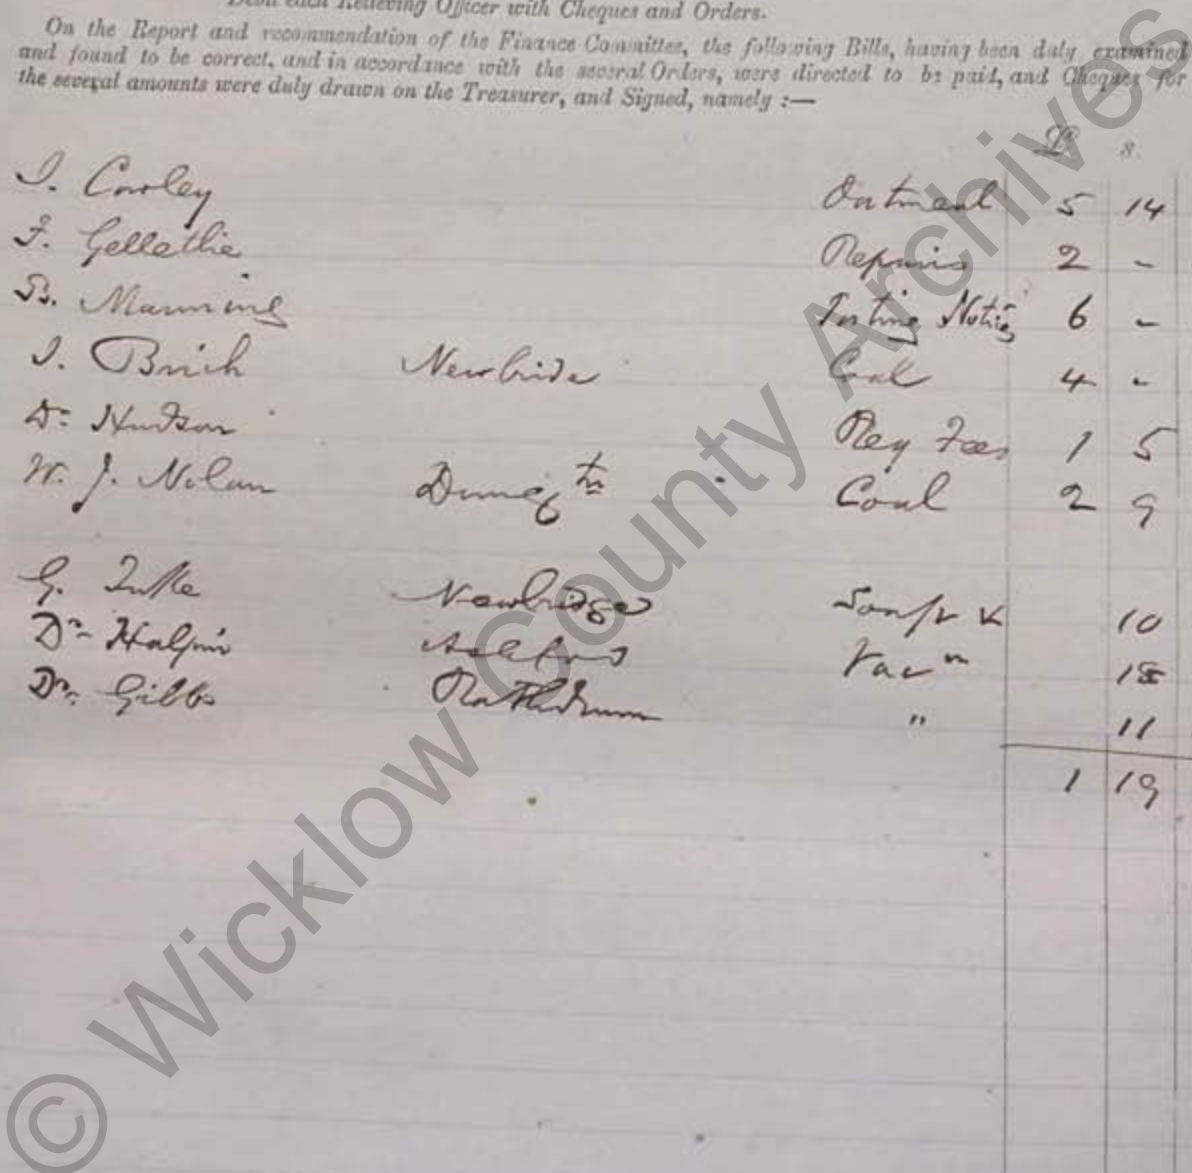 Debit each Relieving Officer with Cheques and Orders.
On the Report and recommendation of the Finance Committee, the following Bills, having been duly examined
and found to be correct, and in accordance with the several Orders, were directed to be paid, and Cheques for
the several amounts were duly drawn on the Treasurer, and Signed, namely :—
£ s.
J. Conley Oatmeal 5 14
J. Gellethie Repairs 2 -
B. Manning Posting Notices 6 -
J. Birch Newbride Coal 4 -
Dr. Hudson Reg Fees 1 5
W. J. Nolan Dung tn Coal 2 9
G. Newbridge 10
Dr. Halpin Ashford Vac n 18
Dr. Gibbs Rathdrum " 11
1 19
© Wicklow County Archives